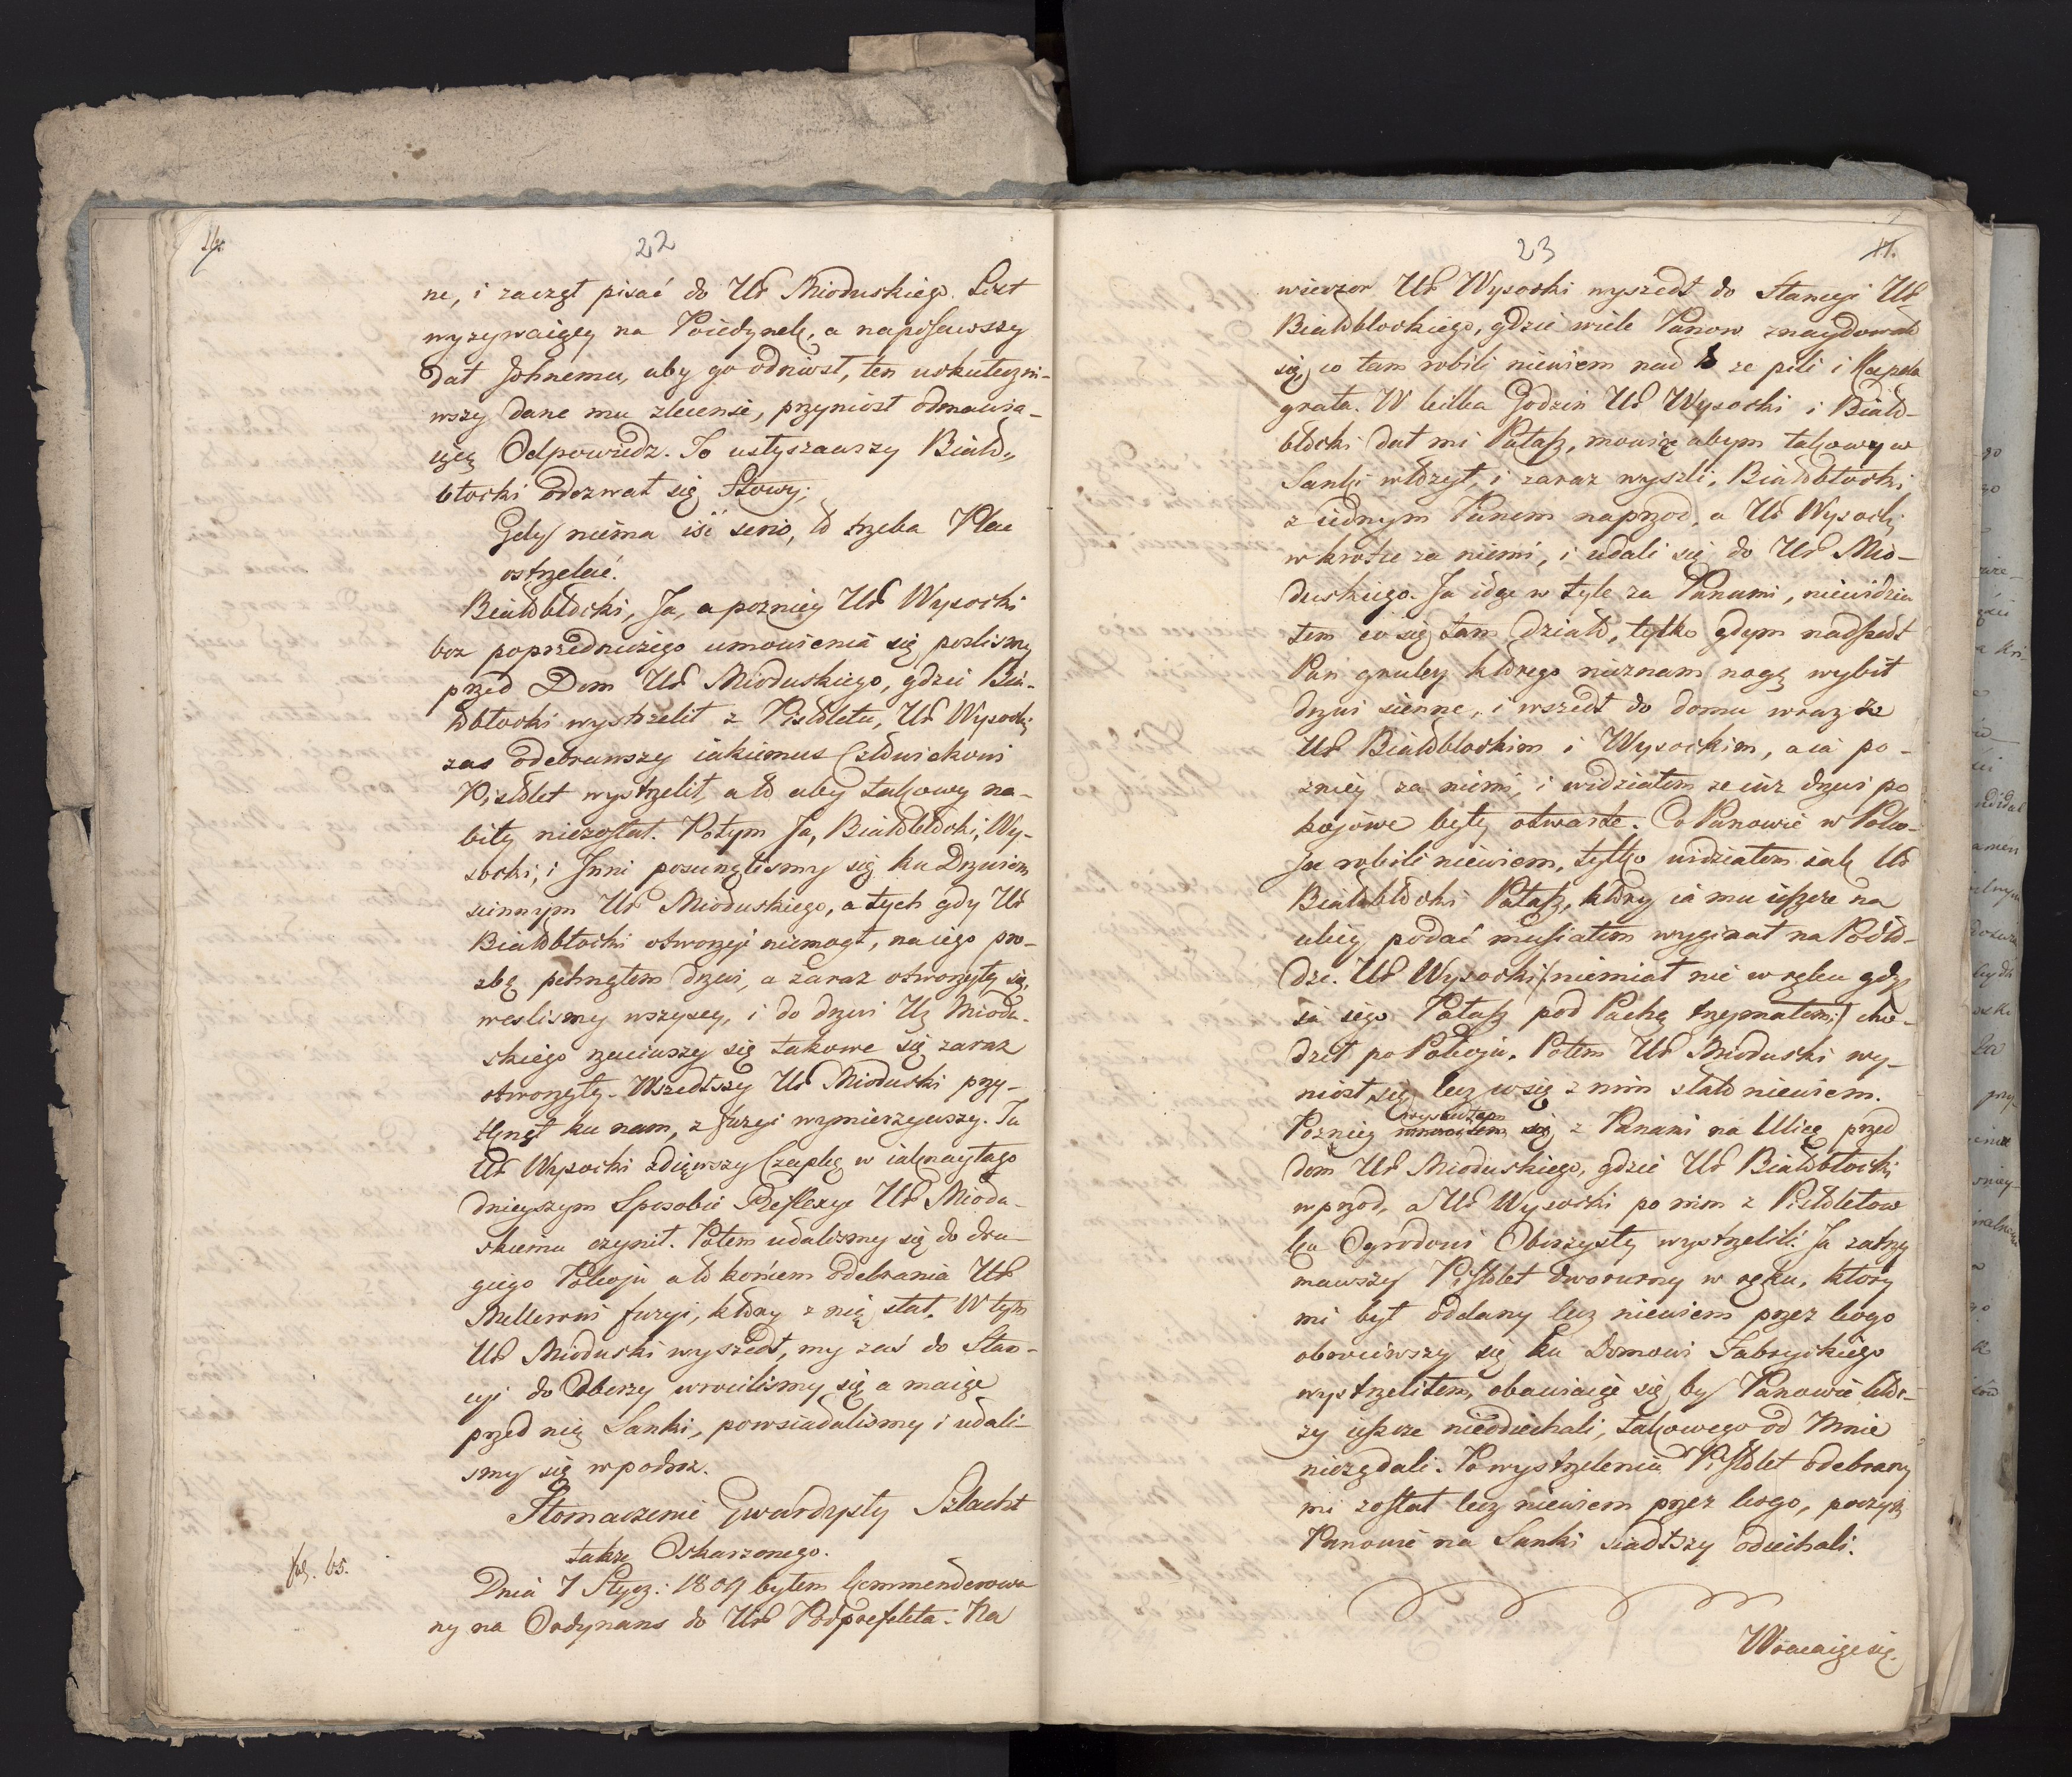 16.
22
ne, i zaczął pisać do Ur Mioduskiego List
wyzywaiący na Poiedynek, a napisawszy
dał Johnemu, aby go odniosł, ten uskuteczni-
wszy dane mu zlecenie, przyniosł odmawia-
iącą Odpowiedz. To usłyszawszy Biało„
błocki odezwał się Słowy;
Gdy niema iść serio, to trzeba Plac
ostrzelać.
Białobłocki, Ja, a pozniey Ur Wysocki
bez poprzedniczego umowienia się poslismy
przed Dom Ur Mioduskiego, gdzie Bia-
łobłocki wystrzelił z Pistoletu, Ur Wysocki
zas odebrawszy iakiemus Człowiekowi
Pistolet wystrzelił, a to aby takowy na-
bity niezostał. Potym Ja, Białobłocki, Wy-
socki, i Inni posunęlismy się ku Drzwiom
siennym Ur Mioduskiego, a tych gdy Ur
Białobłocki otworzyć niemogł, na iego pro-
zbę pchnąłem drzwi, a zaraz otworzyły się,
weslismy wszyscy, i do drzwi Ur Miodu-
skiego rzuciwszy się takowe się zaraz
otworzyły. Wszedłszy Ur Mioduski przy-
stąpił ku nam, z fuzyi wymierzywszy. Tu
Ur Wysocki zdiąwszy Czapkę w iaknayłago
dnieyszym Sposobie Reflexye Ur Miodu-
skiemu czynił. Potem udalismy się do dru-
giego Pokoju a to końcem odebrania Ur
Mellerowi fuzyi, ktory z nią stał. W tym
Ur Mioduski wyszedł, my zaś do Stan-
cyi do Oberzy wrocilismy się a maiąc
przed nią Sanki, powsiadalismy i udali-
smy się w podroz.
Tłomaczenie Gwardysty Szlacht
także Oskarzonego.
fol. 65.
Dnia 7 Stycz: 1809 byłem kommenderowa
ny na Ordynans do Ur Podprefekta. Na
17.
23
wieczor Ur Wysocki wyszedł do Stancyi Ur
Białobłockiego, gdzie wiele Panow znaydowało
się, co tam robili niewiem nad to ze pili i Kapela
grała. W kilka Godzin Ur Wysocki i Biało-
błocki dał mi Pałasz, mowiąc abym takowy w
Sanki włożył, i zaraz wyszli, Białobłocki
z iednym Panem naprzod, a Ur Wysocki
wkrotce za niemi, i udali się do Ur Mio-
duskiego. Ja idąc w tyle za Panami, niewidzia
łem co się tam działo, tylko gdym nadszedł
Pan gruby ktorego nieznam nogą wybił
drzwi sienne, i wszedł do domu wraz z
Ur Białobłockim i Wysockim, a ia po-
zniey za niemi, i widziałem ze iuz drzwi po
kojowe były otwarte. Co Panowie w Poko-
ju robili niewiem, tylko widziałem iak Ur
Białobłocki Pałasz, ktory ia mu ieszcze na
ulicy podać musiałem wyginał na Podło-
dze. Ur Wysocki /: niemiał nic w ręku gdyz
ia iego Pałasz pod Pachą trzymałem :/ cho-
dził po Pokoju. Potem Ur Mioduski wy-
niosł się, lecz co się z nim stało niewiem.
Pozniey wyszedłem z Panami na Ulicę przed
dom Ur Mioduskiego, gdzie Ur Białobłocki
wprzod, a Ur Wysocki po nim z Pistoletow
ku Ogrodowi Oberzysty wystrzelili. Ja zatrzy
mawszy Pistolet dworurny w ręku, ktory
mi był oddany lecz niewiem przez kogo
obrociwszy się ku Domowi Fabryckiego
wystrzeliłem, obawiaiąc się by Panowie kto-
rzy ieszcze nieodiechali, takowego od Mnie
nieządali. Po wystrzeleniu Pistolet odebrany
mi został lecz niewiem przez kogo, poczym
Panowie na Sanki siadłszy odiechali.
Wracaiąc się